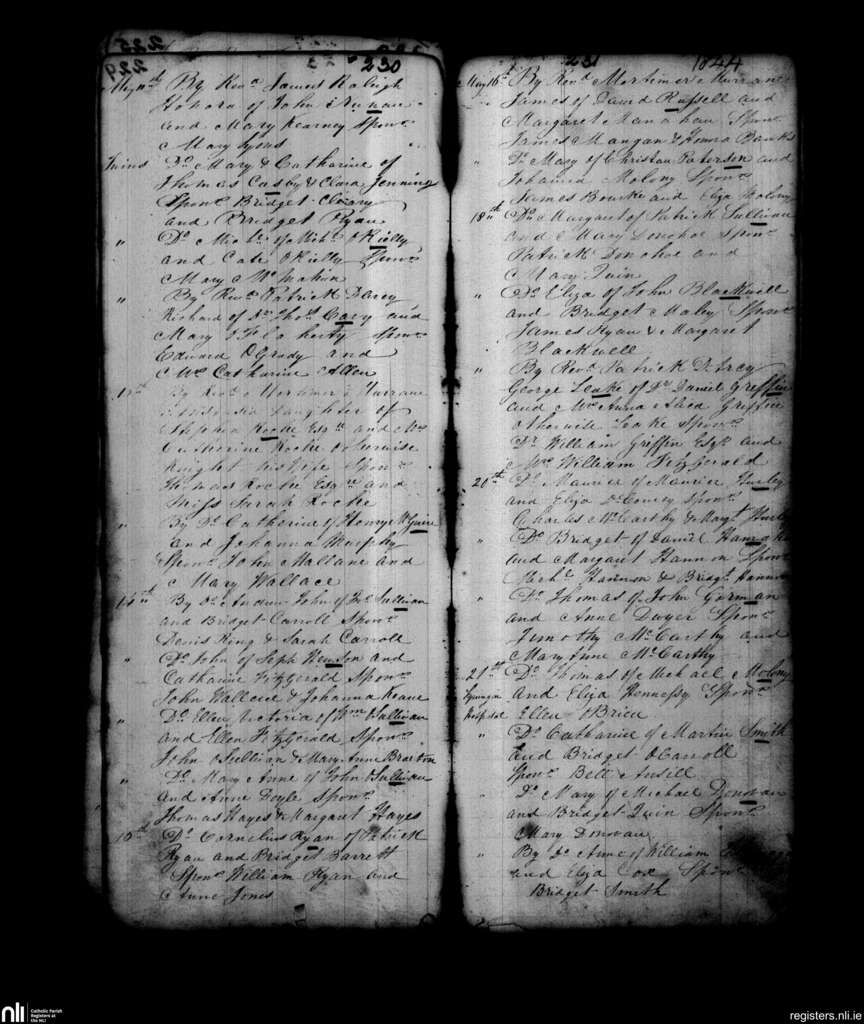 229
230
May 11th By Revd. James Raleigh
Honora of John
and Mary Kearney Sponr.
Mary Lyons
Twins Do. Mary & Catharine of
Thomas Casby & Clara Jennings
Sponr. Bridget Cleary
and Bridget Ryan
" Do. Michl. of Michl. OKielly
and Cate OKielly Sponrs.
Mary McMahon
" By Revd. Patrick Darcy
Richard of Dr. Thos. Carey and
Mary Sponrs.
Edward OGrady and
Mrs. Catharine Allen
By Revd. Mortimer
daughter of
Stephen Roche Esqr. and Mrs.
Catherine Roche otherwise
Knight his Wife Sponrs.
Thomas Roche Esqre. and
Miss Sarah Roche
" By Do. Catherine of Henry McGuire
and Johanna Murphy
Sponr. John Mallane and
Mary Wallace
14th By Do. Andrew John of Sullivan
and Bridget Carroll Sponr.
Denis King & Sarah Carroll
" Do. John of Newson and
Catharine Fitzgerald Sponr.
John Wallace & Johanna Keane
" Do. Ellen Victoria of Wm. OSullivan
and Ellen Fitzgerald Sponr.
John OSullivan & Mary Anne
" Do. Mary Anne of John OSullivan
and Anne Doyle Sponr.
Thomas Hayes & Margaret Hayes
15th Do. Cornelius Ryan of Patrick
Ryan and Bridget Barrett
Sponr. William Ryan and
Anne Jones
231 1844
May 16th By Revd. Mortimer
James of David Russell and
Margaret Manahan Sponr.
James Mangan & Honora Banks
" Do. Mary of Christian Paterson and
Johanna Molony Sponr.
James Bourke and Eliza Molony
18th Do. Margaret of Patrick Sullivan
and Mary Donohoe Sponr.
Patrick Donohoe and
Mary Quin
" Do. Eliza of John Blackwell
and Bridget Maley Sponr.
James Ryan & Margaret
Blackwell
" By Revd. Patrick DArcy
George Leake of Dr. Daniel Griffin
and Mrs. Anna Griffin
otherwise Leake Sponr.
Dr. William Griffin Esqr. and
Mrs. William Fitzgerald
20th Do. Maurice of Maurice Hurley
and Eliza DeCourcy Sponr.
Charles McCarthy & Margt. Hurley
" Do. Bridget of Daniel
and Margaret Hannon Sponr.
Hannon & Bridgt. Hannon
" Do. Thomas of John Gorman
and Anne Dwyer Sponr.
Timothy McCarthy and
Mary Anne McCarthy
21st Do. Thomas of Michael Molony
and Eliza Hennessy Sponr.
Hospital Ellen OBrien
" Do. Catharine of Martin Smith
and Bridget OCarroll
Sponr.
" Do. Mary of Michael Donovan
and Bridget Quin Sponr.
Mary Donovan
" By Do. Anne of William
and Eliza Cox Sponr.
Bridget Smith
nli Catholic Parish
Registers at
the NLI
registers.nli.ie